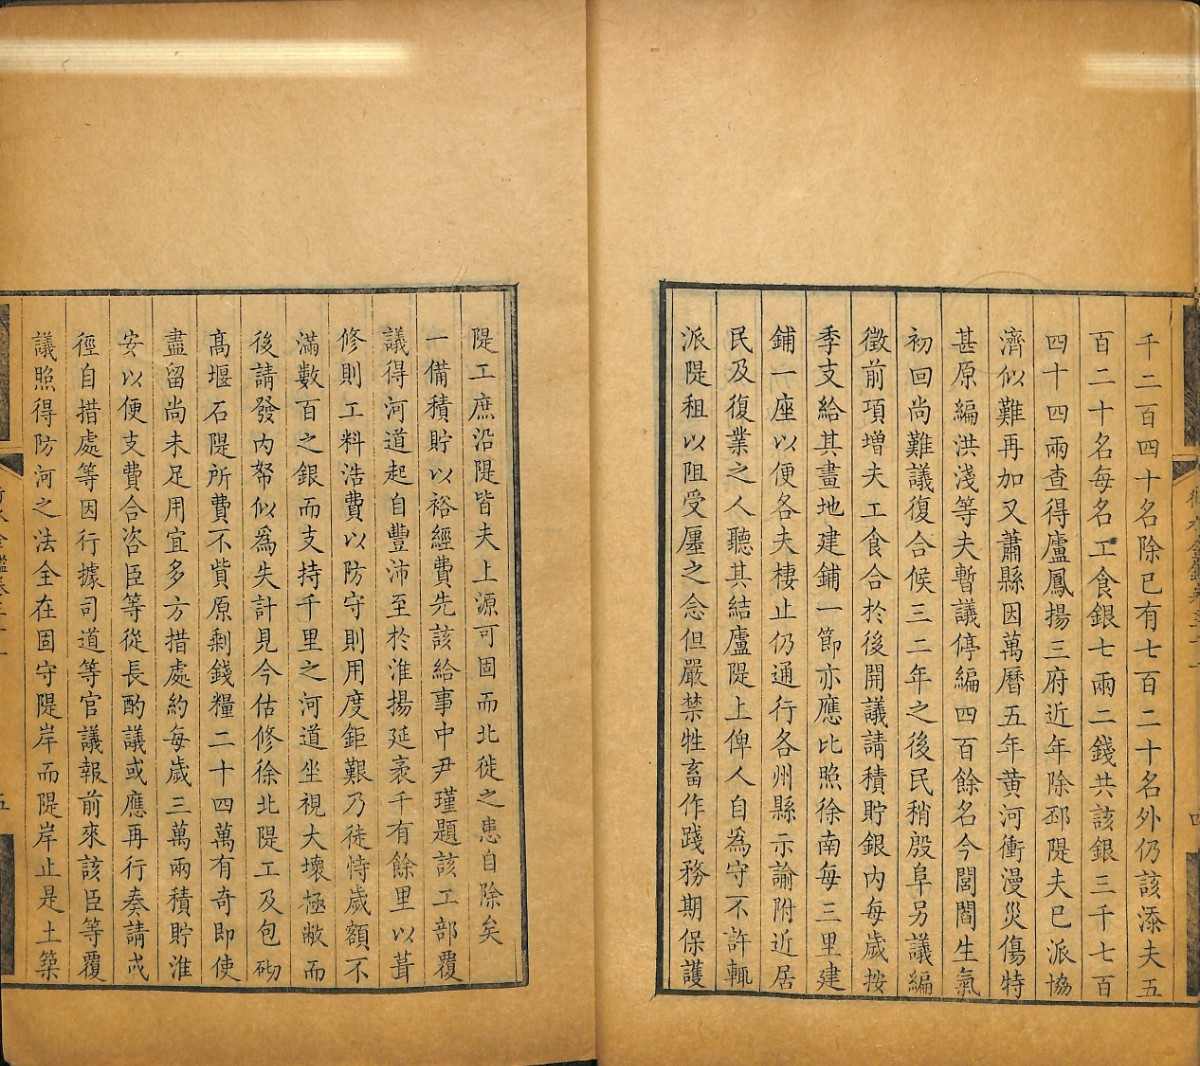 千二百四十名除已有七百二十名外仍該添夫五
百二十名每名工食銀七兩二錢共該銀三千七百
四十四兩查得廬鳳揚三府近年除邳隄夫已派協
濟似難再加又蕭縣因萬曆五年黄河衝漫災傷特
甚原編洪淺等夫暫議停編四百餘名今閭閻生氣
初回尚難議復合候三二年之後民稍殷阜另議編
徵前項增夫工食合於後開議請積貯銀內每歲按
季支給其畫地建鋪一節亦應比照徐南每三里建
鋪一座以便各夫棲止仍通行各州縣示諭附近居
民及復業之人聽其結廬隄上俾人自為守不許輒
派隄租以阻受廛之念但嚴禁牲畜作踐務期保護
隄工庶沿隄皆夫上源可固而北徙之患自除矣
一備積貯以裕經費先該給事中尹瑾題該工部覆
議得河道起自豐沛至於淮揚延袤千有餘里以葺
修則工料浩費以防守則用度鉅艱乃徒恃歲額不
滿數百之銀而支持千里之河道坐視大壞極敝而
後請發內帑似為失計見今估修徐北隄工及包砌
高堰石隄所費不貲原剩錢糧二十四萬有奇即使
盡留尚未足用宜多方措處約每歲三萬兩積貯淮
安以便支費合咨臣等從長酌議或應再行奏請或
徑自措處等因行據司道等官議報前來該臣等覆
議照得防河之法全在固守隄岸而隄岸止是土築